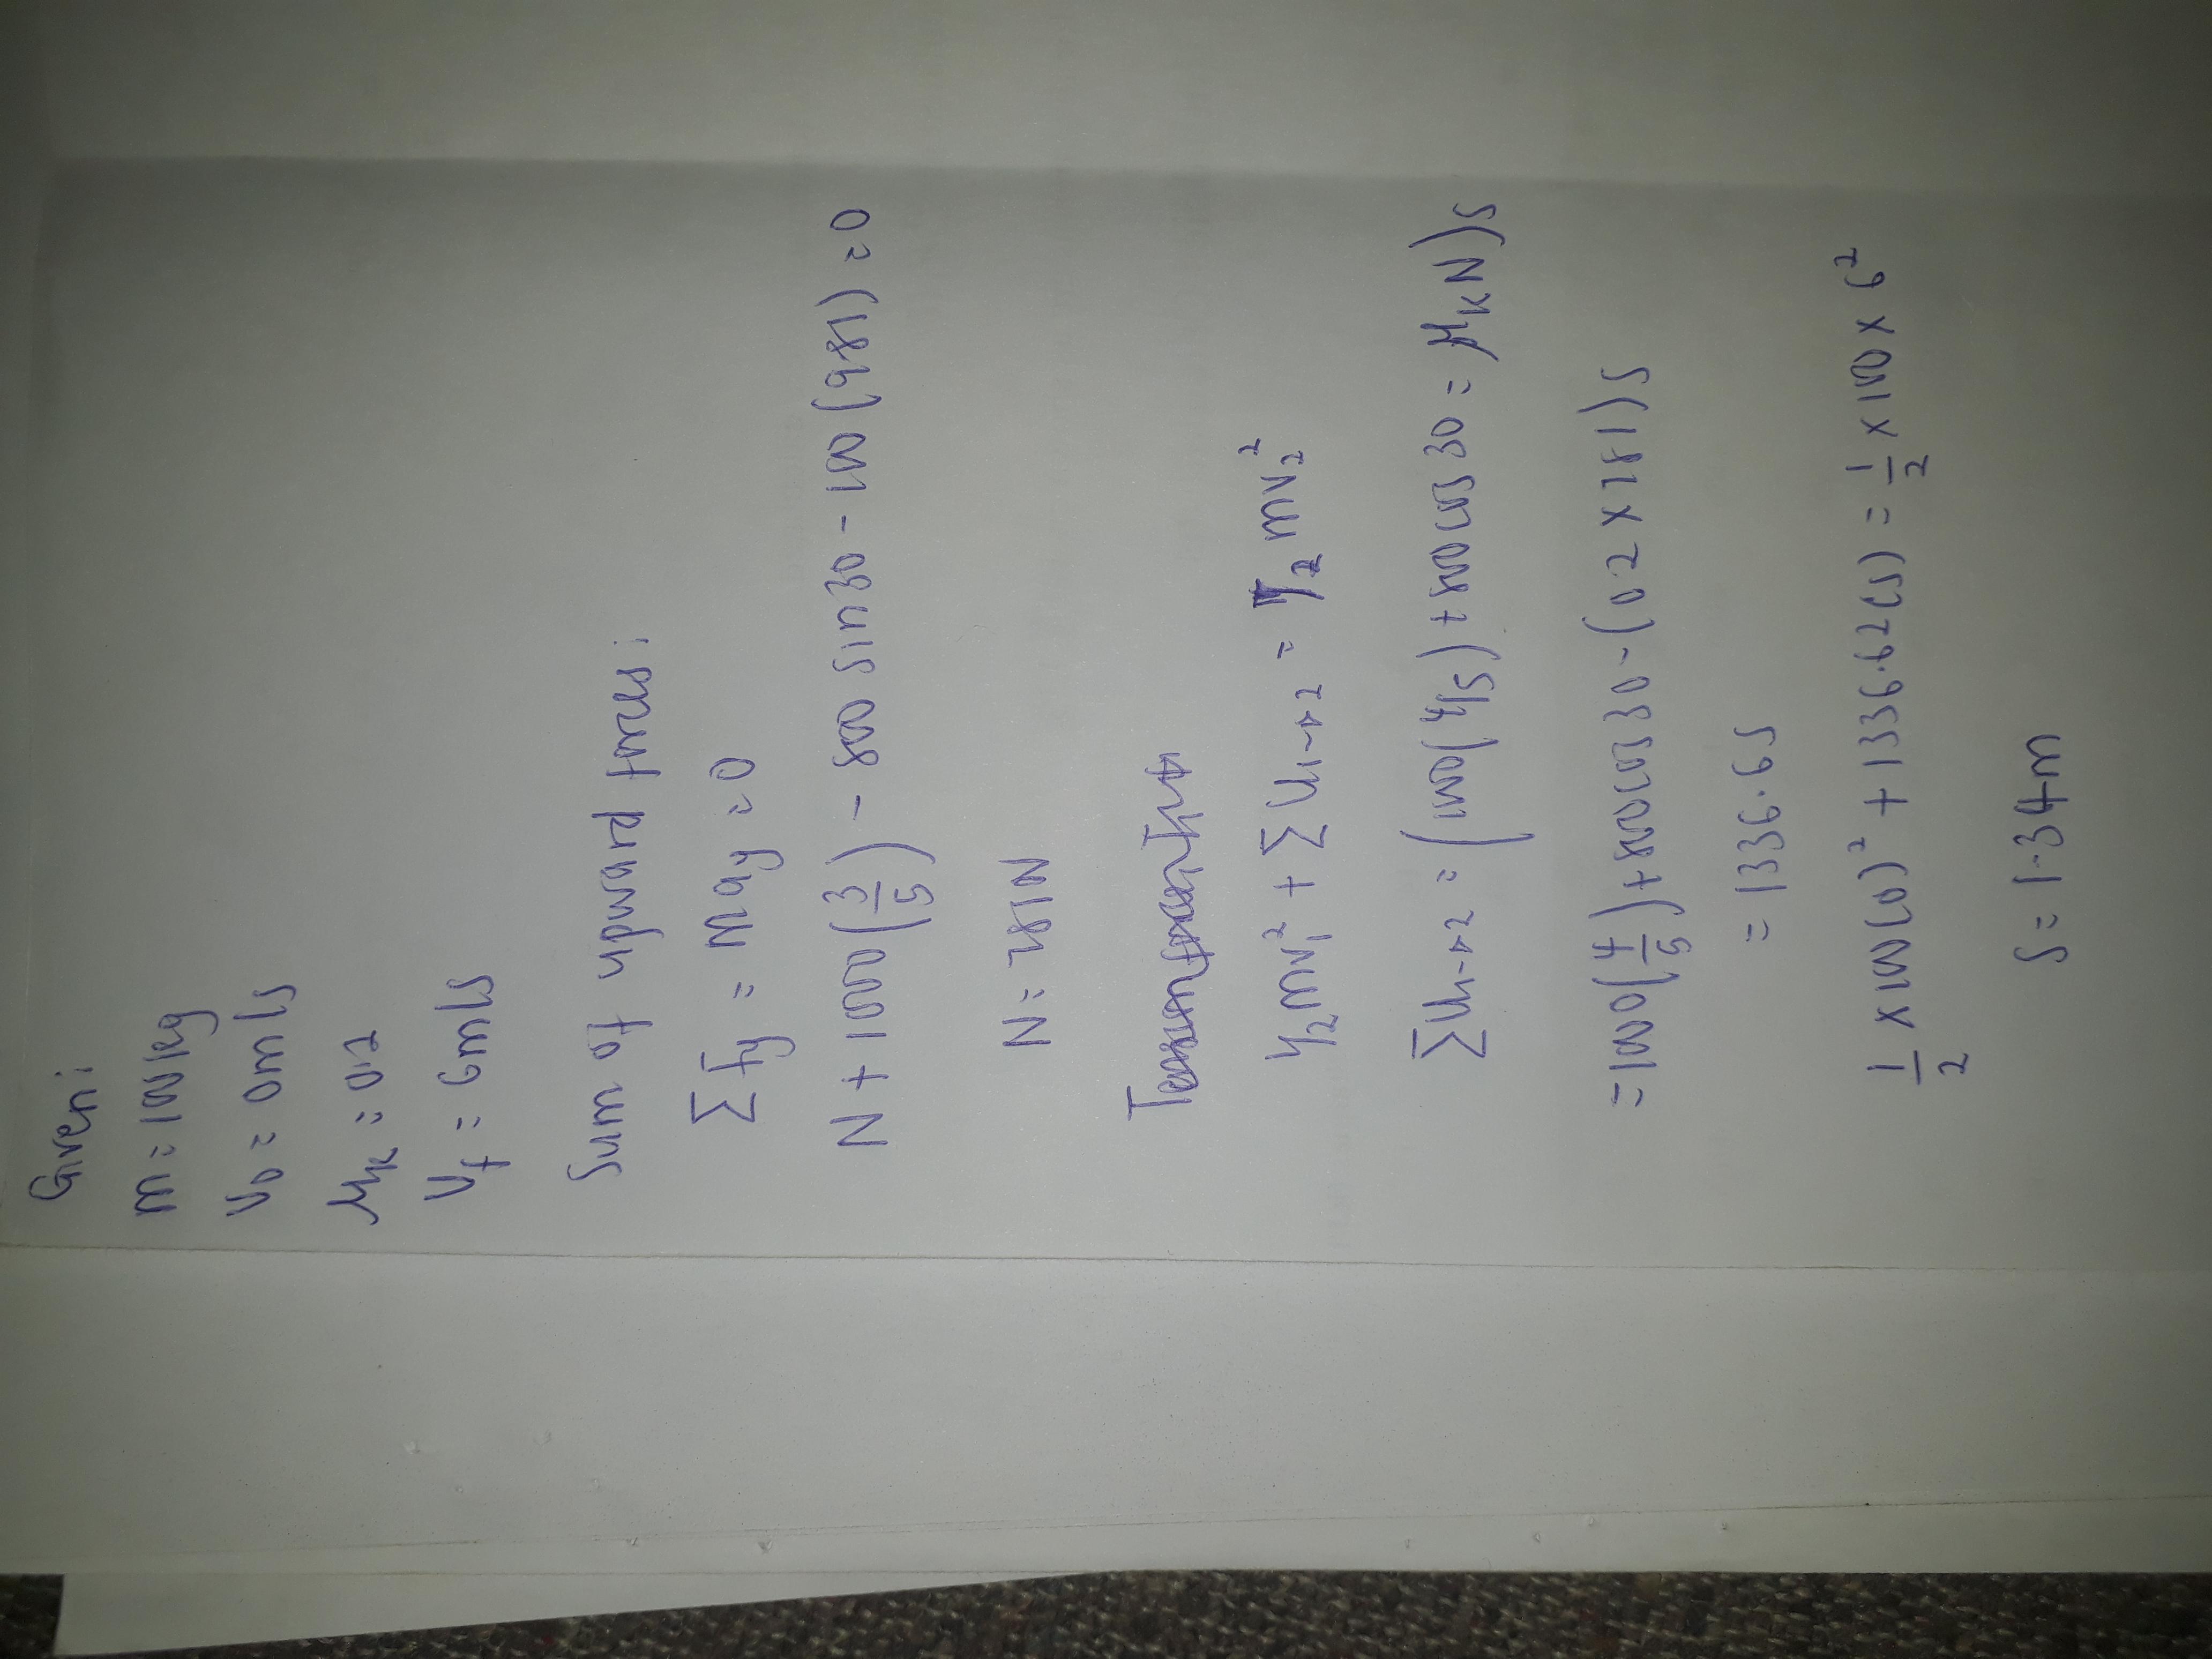 Given:
m = 100kg
V₀ = 0m/s
μₖ = 0.2
V_f = 6m/s
Sum of upward forces:
ΣFy = May = 0
N + 1000(3/5) - 800 sin30 - 100(981) = 0
N = 781N
½mv₁² + ΣU₁→₂ = ½mv₂²
ΣU₁→₂ = (1000(4/5) + 800cos30 = μₖN)s
= 1000(4/5) + 800cos30 - (0.2 × 781)s
= 1336.6s
1/2 × 100(0)² + 1336.62(s) = 1/2 × 100 × 6²
s = 1.34m